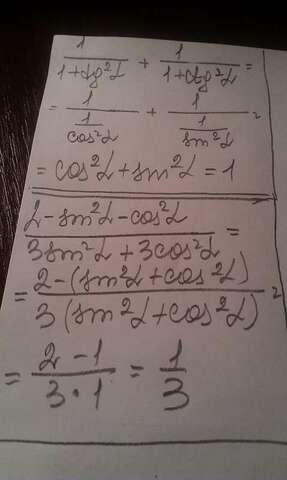 1/(1+tg²α) + 1/(1+ctg²α) =
= 1/(1/cos²α) + 1/(1/sin²α) =
= cos²α + sin²α = 1
(2-sin²α-cos²α)/(3sin²α+3cos²α) =
= (2-(sin²α+cos²α))/(3(sin²α+cos²α)) =
= (2-1)/(3·1) = 1/3